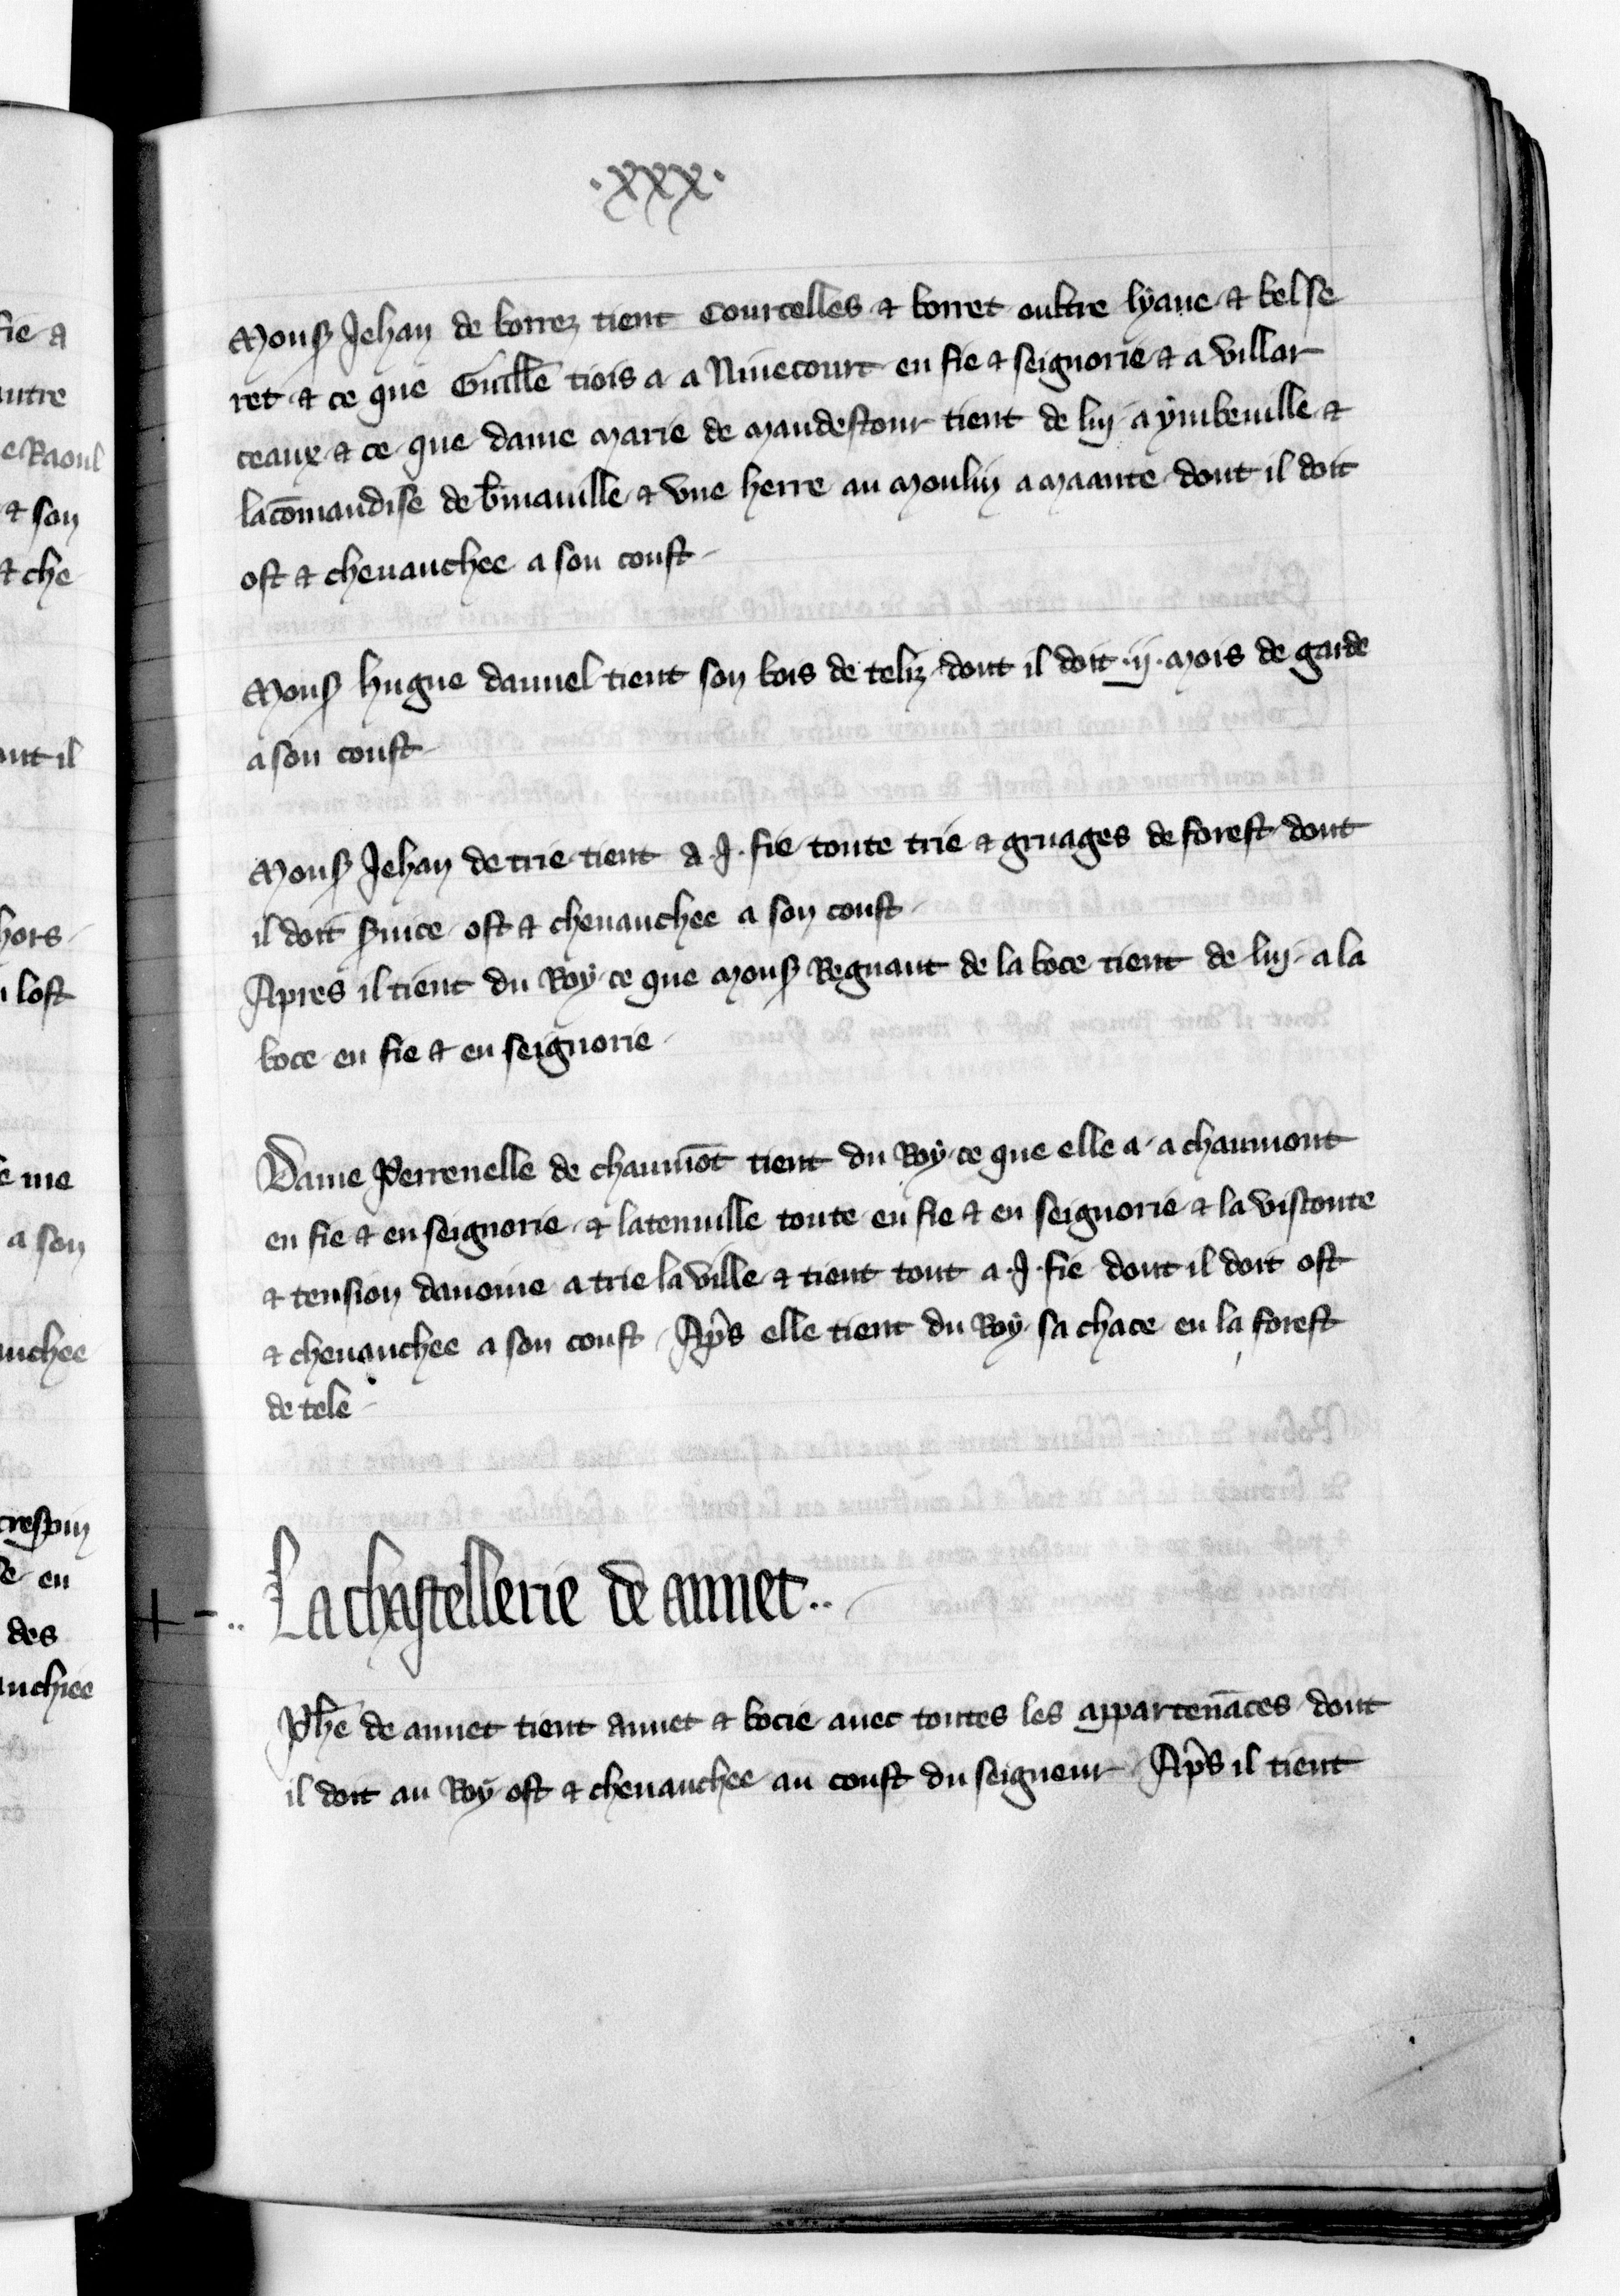 .xxx.
Mons Jehan de borrez tient Courcelles & borret oultre lyaue & belse
ret & ce que Guille tiois a a Niuecourt en fie & seignorie & a villar
ceaux & ce que dame marie de maudestour tient de luy a ymbeuille &
la comandise de bmauille & vne herre au moulin a maante dont il doit
ost & cheuauchee a son coust
Mons hugue dauuel tient son bois de teliz dont il doit .ij. mois de garde
a son coust
Mons Jehan de trie tient a .J. fie toute trie & gruages de forest dont
il doit seruice ost & cheuauchee a son coust
Apres il tient du Roy ce que mons Regnaut de la boce tient de luy a la
boce en fie & en seignorie
Dame Perrenelle de chaumōt tient du Roy ce que elle a a chaumont
en fie & en seignorie & latenuille toute en fie & en seignorie & la visconte
& tension dauoine a trie la ville & tient tout a .J. fie dont il doit ost
& cheuauchee a son coust Ap̄s elle tient du Roy sa chace en la forest
de tele
La chastellerie de annet..
Ph̄e de annet tient annet & bocie auec toutes les appartenāces dont
il doit au Roy ost & cheuauchee au coust du seigneur Ap̄s il tient